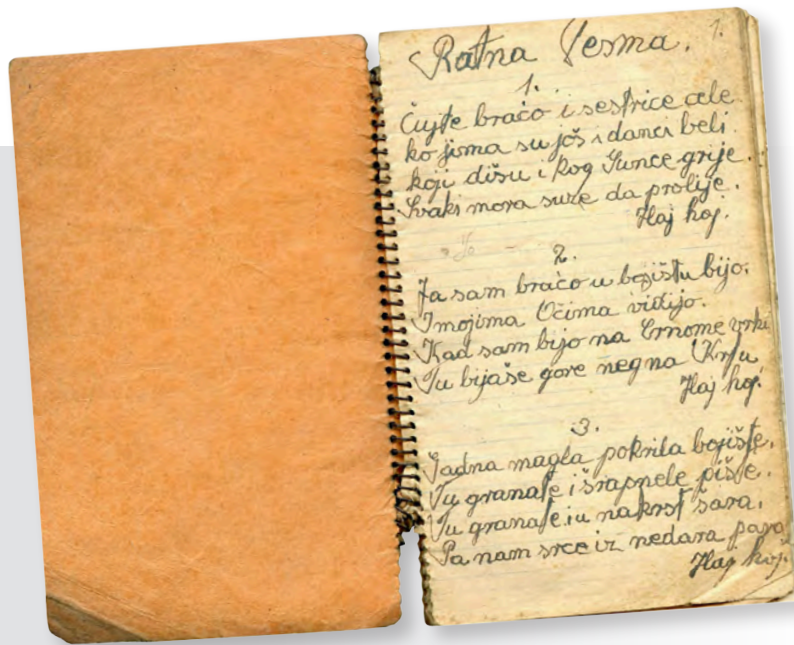 Ratna Pesma. 1.
1.
Čujte braćo i sestrice cele
kojima su još i danci beli
koji dišu i kog Sunce grije.
Svaki mora suze da prolije.
Haj hoj.
2.
Ja sam braćo u bojištu bijo.
I mojima Očima vidijo.
Kad sam bijo na Crnome vrhi
Tu bijaše gore neg na Krfu
Haj hoj.
3.
Jadna magla pokrila bojište.
Tu granate i šrapnele pište.
Tu granate iu nakrst šara.
Pa nam srce iz nedara para
Haj hoj.